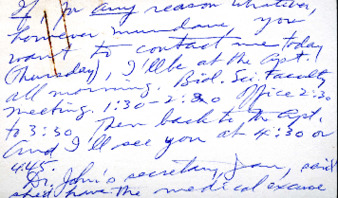 If for any reason whatever,
however mundane, you
want to contact me today
(Thursday), I'll be at the Apt.
all morning. Biol. Sci. Faculty
meeting. 1:30-2:20 Office 2:30
to 3:30 Then back to the Apt.
And I'll see you at 4:30 or
4:45.
Dr. John's secretary, Jan, said
she'd have the medical excuse